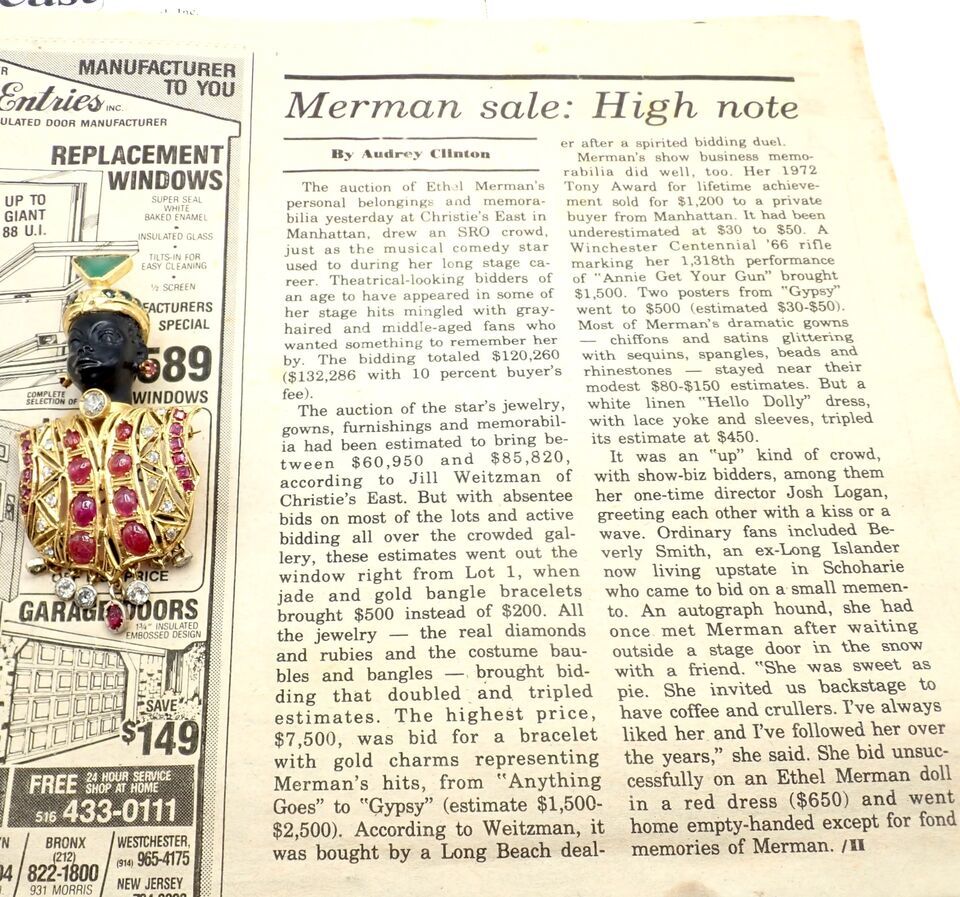 MANUFACTURER
TO YOU
Entries INC.
ULATED DOOR MANUFACTURER
REPLACEMENT
WINDOWS
UP TO
GIANT
88 U.I.
SUPER SEAL
WHITE
BAKED ENAMEL
INSULATED GLASS
TILTS-IN FOR
EASY CLEANING
½ SCREEN
SPECIAL
589
COMPLETE
SELECTION OF
WINDOWS
PRICE
GARAGE DOORS
1¾" INSULATED
EMBOSSED DESIGN
SAVE
$149
FREE 24 HOUR SERVICE
SHOP AT HOME
516 433-0111
BRONX
(212)
822-1800
931 MORRIS
WESTCHESTER,
(914) 965-4175
NEW JERSEY
Merman sale: High note
By Audrey Clinton
The auction of Ethel Merman's
personal belongings and memora-
bilia yesterday at Christie's East in
Manhattan, drew an SRO crowd,
just as the musical comedy star
used to during her long stage ca-
reer. Theatrical-looking bidders of
an age to have appeared in some of
her stage hits mingled with gray-
haired and middle-aged fans who
wanted something to remember her
by. The bidding totaled $120,260
($132,286 with 10 percent buyer's
fee).
The auction of the star's jewelry,
gowns, furnishings and memorabil-
ia had been estimated to bring be-
tween $60,950 and $85,820,
according to Jill Weitzman of
Christie's East. But with absentee
bids on most of the lots and active
bidding all over the crowded gal-
lery, these estimates went out the
window right from Lot 1, when
jade and gold bangle bracelets
brought $500 instead of $200. All
the jewelry — the real diamonds
and rubies and the costume bau-
bles and bangles — brought bid-
ding that doubled and tripled
estimates. The highest price,
$7,500, was bid for a bracelet
with gold charms representing
Merman's hits, from "Anything
Goes" to "Gypsy" (estimate $1,500-
$2,500). According to Weitzman, it
was bought by a Long Beach deal-
er after a spirited bidding duel.
Merman's show business memo-
rabilia did well, too. Her 1972
Tony Award for lifetime achieve-
ment sold for $1,200 to a private
buyer from Manhattan. It had been
underestimated at $30 to $50. A
Winchester Centennial '66 rifle
marking her 1,318th performance
of "Annie Get Your Gun" brought
$1,500. Two posters from "Gypsy"
went to $500 (estimated $30-$50).
Most of Merman's dramatic gowns
— chiffons and satins glittering
with sequins, spangles, beads and
rhinestones — stayed near their
modest $80-$150 estimates. But a
white linen "Hello Dolly" dress,
with lace yoke and sleeves, tripled
its estimate at $450.
It was an "up" kind of crowd,
with show-biz bidders, among them
her one-time director Josh Logan,
greeting each other with a kiss or a
wave. Ordinary fans included Be-
verly Smith, an ex-Long Islander
now living upstate in Schoharie
who came to bid on a small memen-
to. An autograph hound, she had
once met Merman after waiting
outside a stage door in the snow
with a friend. "She was sweet as
pie. She invited us backstage to
have coffee and crullers. I've always
liked her and I've followed her over
the years," she said. She bid unsuc-
cessfully on an Ethel Merman doll
in a red dress ($650) and went
home empty-handed except for fond
memories of Merman. /II